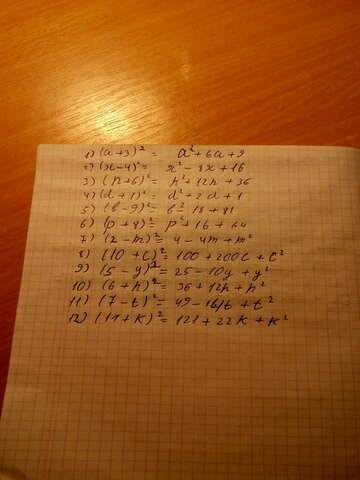 1) (a+3)² = a²+6a+9
2) (x-4)² = x²-8x+16
3) (h+6)² = h²+12h+36
4) (d+1)² = d²+2d+1
5) (b-9)² = b²-18+81
6) (p+8)² = p²+16+64
7) (2-m)² = 4-4m+m²
8) (10+c)² = 100+200c+c²
9) (5-y)² = 25-10y+y²
10) (6+h)² = 36+12h+h²
11) (7-t)² = 49-16t+t²
12) (11+k)² = 121+22k+k²